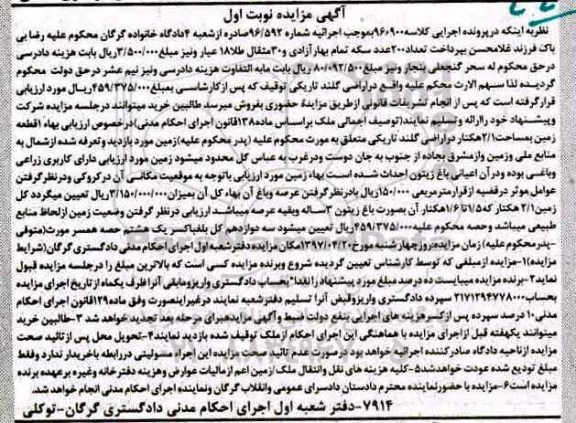 آگهی مزایده نوبت اول
نظر به اینکه در پرونده اجرایی کلاسه ۹۶۰۹۰۰ بموجب اجرائیه شماره ۹۶/۵۹۲ صادره از شعبه ۴ دادگاه خانواده گرگان محکوم علیه رضا یی
پاک فرزند غلامحسن بپرداخت تعداد ۲۰۰ عدد سکه تمام بهار آزادی و ۳۰ مثقال طلا ۱۸ عیار و نیز مبلغ ۳/۵۰۰/۰۰۰ ریال بابت هزینه دادرسی
در حق محکوم له سحر گنجعلی بنجار و نیز مبلغ ۸۰/۰۹۲/۵۰۰ ریال بابت مابه التفاوت هزینه دادرسی و نیز نیم عشر در حق دولت محکوم
گردیده لذا سهم الارث محکم علیه واقع در اراضی گلند تاریکی توقیف که پس از کارشناسی بمبلغ ۴۵۹/۳۷۵/۰۰۰ ریال مورد ارزیابی
قرار گرفته است که پس از انجام تشریفات قانونی از طریق مزایده حضوری بفروش میرسد طالبین خرید میتوانند در جلسه مزایده شرکت
و پیشنهاد خود را ارائه و تسلیم نمایند (توصیف اجمالی ملک براساس ماده ۱۳۸ قانون اجرای احکام مدنی) درخصوص ارزیابی بهاء ۱ قطعه
زمین بمساحت ۲/۱ هکتار در اراضی گلند تاریکی متعلق به مورث محکوم علیه (پدر محکوم علیه) زمین مورد بازدید و تعرفه شده از شمال به
منابع ملی وزمین وازمشرق بجاده از جنوب به جان دوست و در غرب به عباس کل محدود میشود زمین مورد ارزیابی دارای کاربری زراعی
وباغی بوده و در آن اعیانی باغ زیتون احداث شده است بهاء زمین مورد ارزیابی باتوجه به موقعیت مکانی آن در کروکی و در نظر گرفتن
عوامل موثر در قضیه از قرار متر مربعی ۱۵۰/۰۰۰ ریال بادر نظر گرفتن عرصه وباغ آن بهاء کل آن بمیزان ۳/۱۵۰/۰۰۰/۰۰۰ ریال تعیین میگردد کل
زمین ۲/۱ هکتار که ۱/۵ تا ۱/۶ هکتار آن بصورت باغ زیتون ۳ ساله وبقیه عرصه میباشد ارزیابی در نظر گرفتن وضعیت زمین از لحاظ منابع
طبیعی میباشد وحصه محکوم علیه ۴۵۹/۳۷۵/۰۰۰ ریال تعیین میشود سه دوازدهم کل بلغیاکسر یک هشتم حصه همسر مورث (متوفی
-پدر محکوم علیه) زمان مزایده: روز چهارشنبه مورخ ۱۳۹۷/۰۴/۲۰ مکان مزایده دفتر شعبه اول اجرای احکام مدنی دادگستری گرگان (شرایط
مزایده) ۱-مزایده از مبلغی که توسط کارشناس تعیین گردیده شروع وبرنده مزایده کسی است که بالاترین مبلغ را در جلسه مزایده قبول
نماید ۲-برنده مزایده میبایست ده درصد مبلغ مورد پیشنهاد را نقدا" بحساب دادگستری واریز و مابقی آنرا ظرف یکماه از تاریخ اجرای مزایده
بحساب ۲۱۷۱۲۹۴۷۷۸۰۰۰ سپرده دادگستری واریز و قبض آنرا تسلیم دفتر شعبه نمایند در غیر اینصورت وفق ماده ۱۲۹ قانون اجرای احکام
مدنی ۱۰ درصد سپرده پس از کسر هزینه های اجرایی بنفع دولت ضبط و آگهی مزایده برای مرحله بعد تجدید خواهد شد ۳-طالبین خرید
میتوانند یکهفته قبل از اجرای مزایده با هماهنگی این اجرای احکام از ملک توقیف شده بازدید نمایند ۴-تحویل محل پس از تائید صحت
مزایده از ناحیه دادگاه صادر کننده اجرائیه خواهد بود در صورت عدم تائید صحت مزایده این اجراء مسئولیتی در رابطه با خریدار ندارد و فقط
مبلغ تودیع شده عودت خواهد شد ۵-کلیه هزینه های نقل و انتقال ملک / زمین اعم از مالیات عوارض و هزینه دفترخانه وغیره بر عهده برنده
مزایده است ۶-مزایده با حضور نماینده محترم دادستان دادسرای عمومی و انقلاب گرگان و نماینده اجرای احکام مدنی انجام خواهد شد.
۷۹۱۴-دفتر شعبه اول اجرای احکام مدنی دادگستری گرگان-توکلی